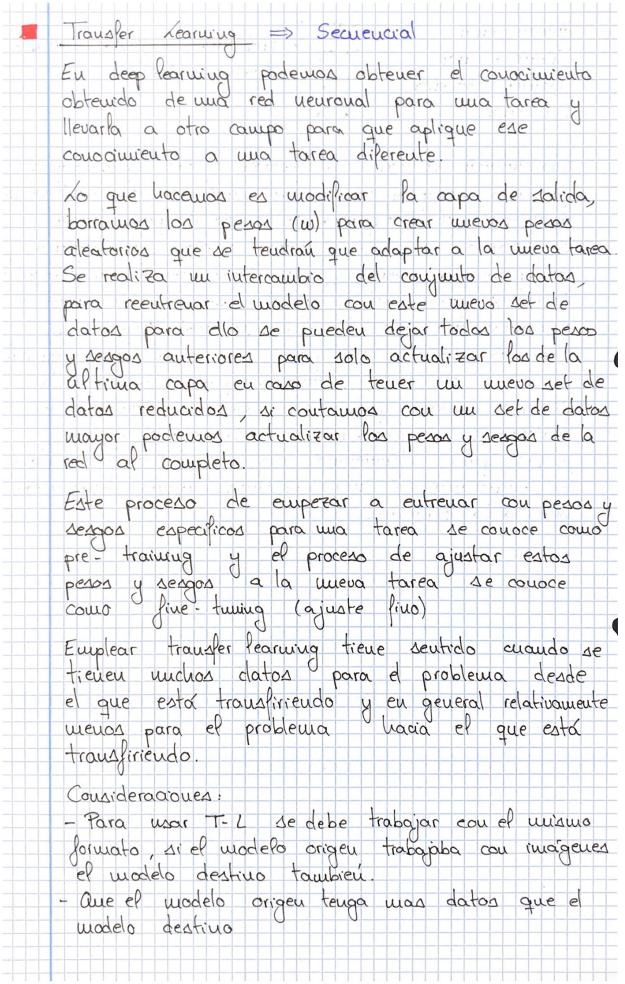 Transfer Learning ⇒ Secuencial
En deep learning podemos obtener el conocimiento
obtenido de una red neuronal para una tarea y
llevarla a otro campo para que aplique ese
conocimiento a una tarea diferente.
Lo que hacemos es modificar la capa de salida,
borramos los pesos (w) para crear nuevos pesos
aleatorios que se tendrán que adaptar a la nueva tarea.
Se realiza un intercambio del conjunto de datos,
para reentrenar el modelo con este nuevo set de
datos para ello se pueden dejar todos los pesos
y sesgos anteriores para solo actualizar los de la
última capa en caso de tener un nuevo set de
datos reducidos, si contamos con un set de datos
mayor podemos actualizar los pesos y sesgos de la
red al completo.
Este proceso de empezar a entrenar con pesos y
sesgos específicos para una tarea se conoce como
pre-training y el proceso de ajustar estos
pesos y sesgos a la nueva tarea se conoce
como fine-tuning (ajuste fino)
Emplear transfer learning tiene sentido cuando se
tienen muchos datos para el problema desde
el que está transfiriendo y en general relativamente
menos para el problema hacia el que está
transfiriendo.
Consideraciones:
- Para usar T-L se debe trabajar con el mismo
formato, si el modelo origen trabajaba con imágenes
el modelo destino también.
- Que el modelo origen tenga mas datos que el
modelo destino